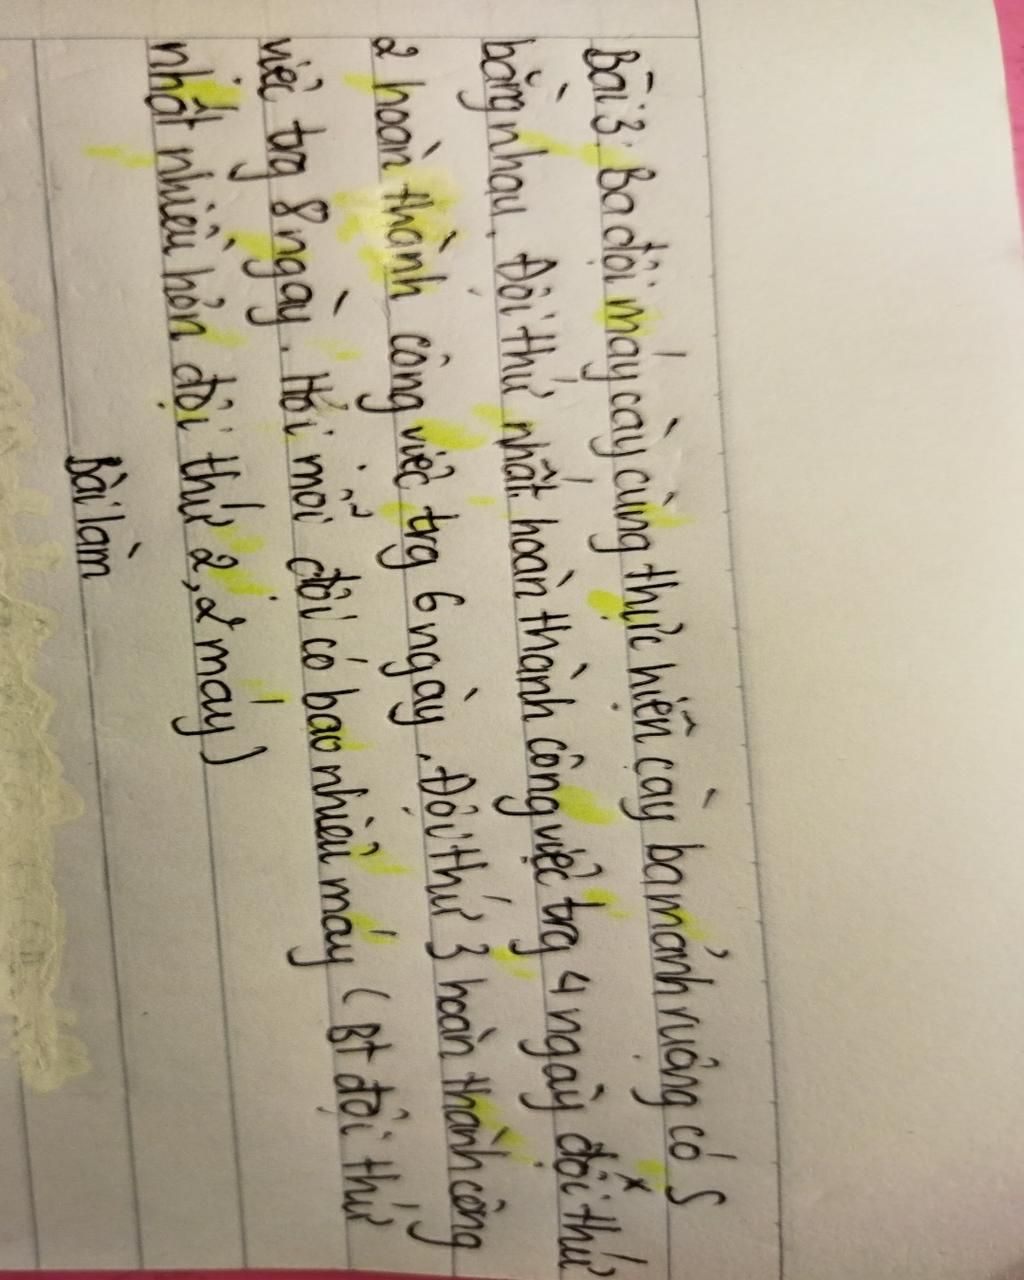 Bài 3: Ba đội máy cày cùng thực hiện cày ba mảnh ruộng có S
bằng nhau. Đội thứ nhất hoàn thành công việc trg 4 ngày đội thứ
2 hoàn thành công việc trg 6 ngày. Đội thứ 3 hoàn thành công
việc trg 8 ngày. Hỏi mỗi đội có bao nhiêu máy (Bt đội thứ
nhất nhiều hơn đội thứ 2, 2 máy)
Bài làm